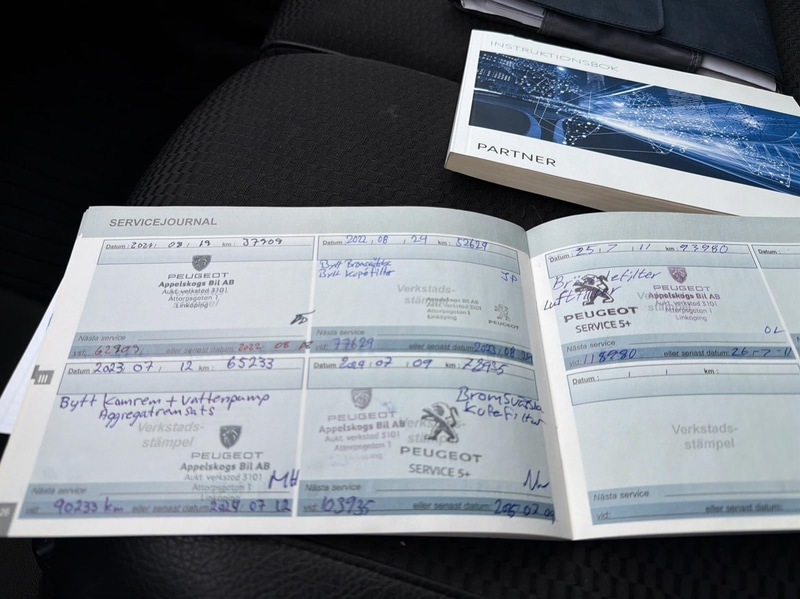 INSTRUKTIONSBOK
PARTNER
SERVICEJOURNAL
Datum: 2021 08 19 km: 37909
PEUGEOT
Appelskogs Bil AB
Aukt. verkstad 3101
Attorpsgatan 1
Linköping
Nästa service
vid: 62909 eller senast datum: 2022 08 19
Datum: 2022 08 24 km: 52629
Bytt Bromsvätska
Bytt Kupefilter
JP
Verkstads-
stämpel
Appelskogs Bil AB
Aukt. verkstad 3101
Attorpsgatan 1
Linköping
PEUGEOT
Nästa service
vid: 77629 eller senast datum: 2023 08 24
Datum: 2023 07 12 km: 65233
Bytt Kamrem + Vattenpump
Aggregatremsats
Verkstads-
stämpel
PEUGEOT
Appelskogs Bil AB
Aukt. verkstad 3101
Attorpsgatan 1
Linköping
MH
Nästa service
vid: 90233 km eller senast datum: 2024 07 12
Datum: 2024 07 09 km: 78935
Bromsvätska
Kupefilter
PEUGEOT
Appelskogs Bil AB
Aukt. verkstad 3101
Attorpsgatan 1
Linköping
PEUGEOT
SERVICE 5+
Nästa service
vid: 103935 eller senast datum:
Datum: 25 7 11 km: 93980
Luftfilter
PEUGEOT
SERVICE 5+
PEUGEOT
Appelskogs Bil AB
Aukt. verkstad 3101
Attorpsgatan 1
Linköping
OL
Nästa service
vid: 118980 eller senast datum: 26 7 11
Datum: km:
Verkstads-
stämpel
Nästa service
vid: eller senast datum:
Datum
26